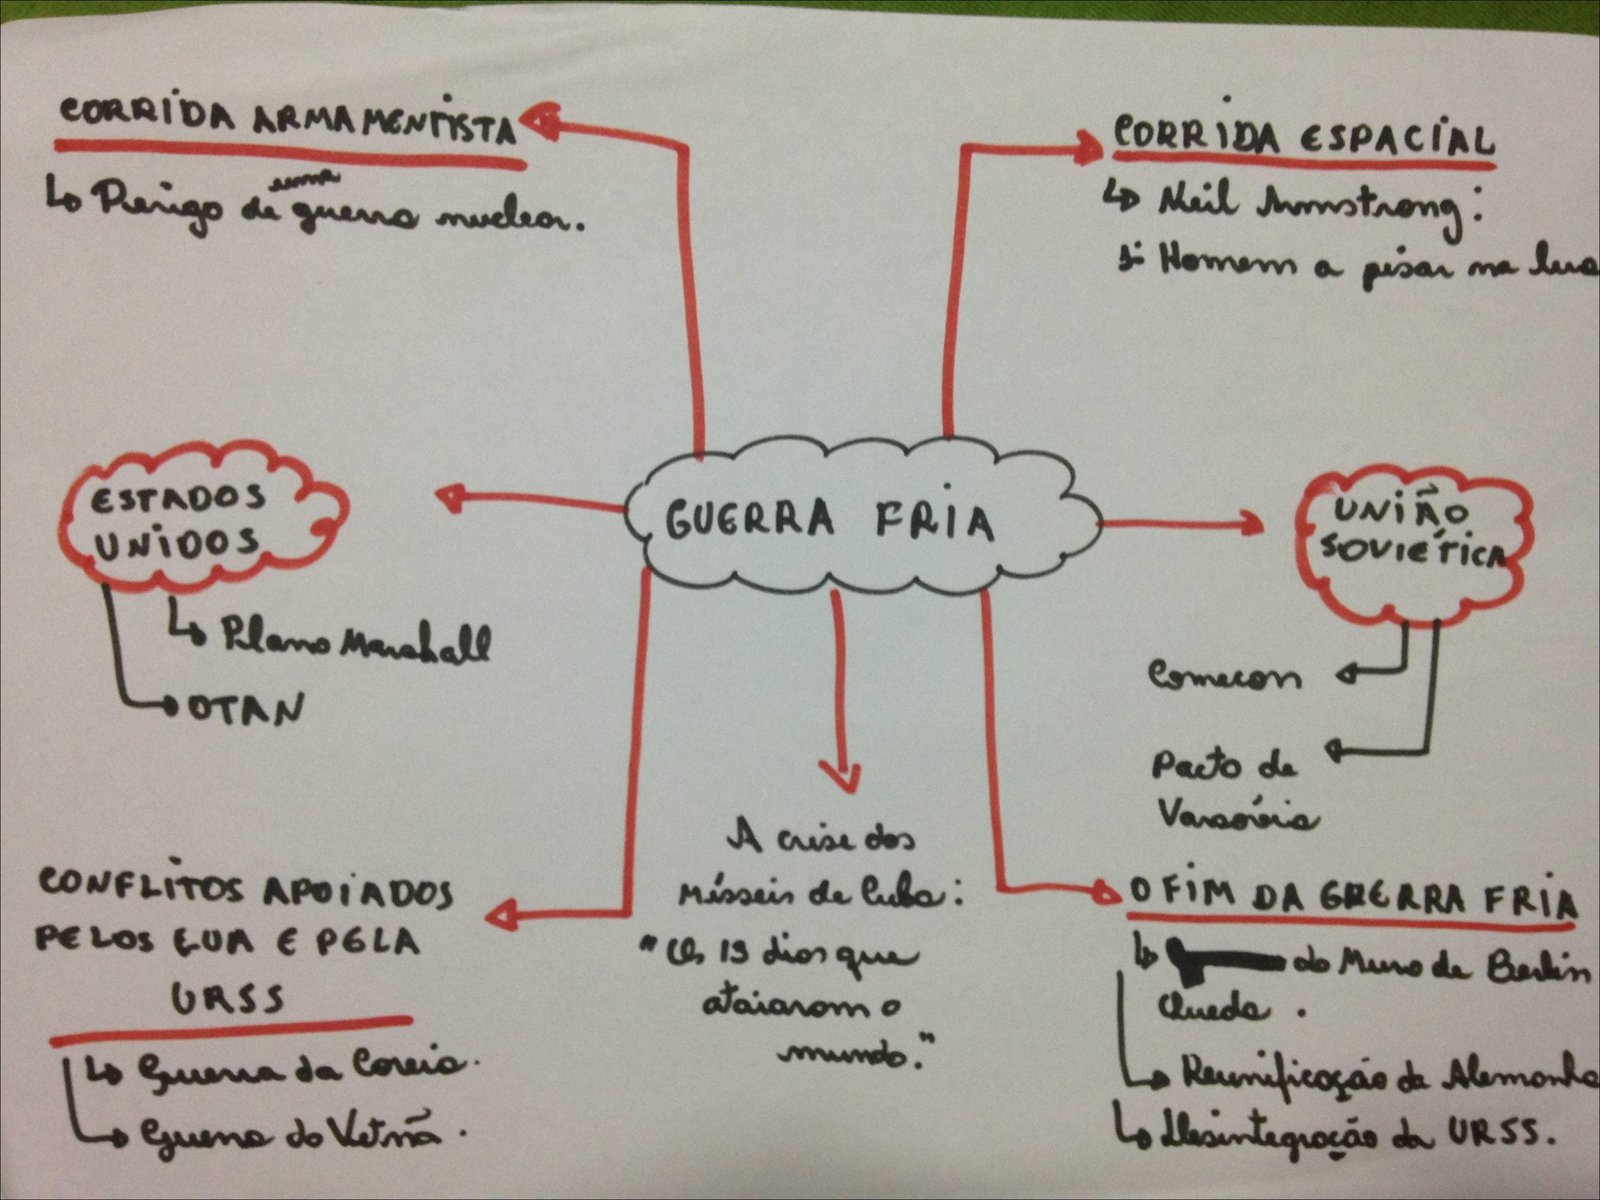 CORRIDA ARMAMENTISTA
Perigo de uma guerra nuclear.
CORRIDA ESPACIAL
Neil Armstrong:
1º Homem a pisar na lua
GUERRA FRIA
ESTADOS
UNIDOS
Plano Marshall
OTAN
UNIÃO
SOVIÉTICA
Comecon
Pacto de
Varsóvia
CONFLITOS APOIADOS
PELOS EUA E PELA
URSS
Guerra da Coreia.
Guerra do Vetnã.
A crise dos
mísseis de Cuba:
"Os 13 dias que
ataiaram o
mundo."
O FIM DA GRERRA FRIA
do Muro de Berlin
Queda .
Reunificação da Alemanha
Desintegração da URSS.